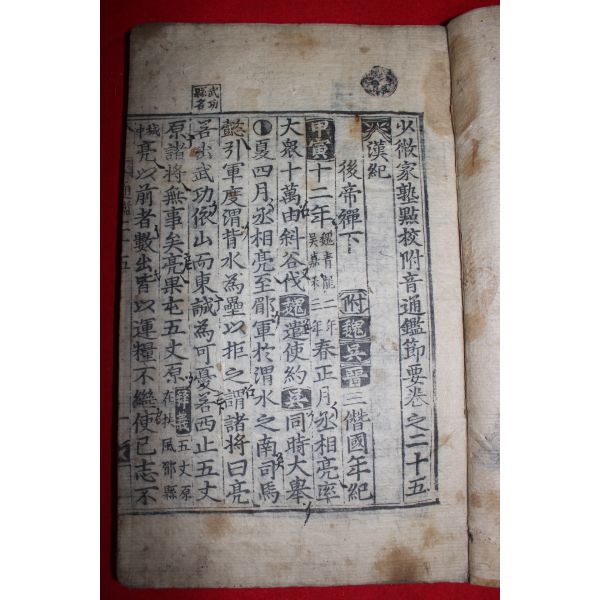 少微家塾點校附音通鑑節要卷之二十五
漢紀
後帝禪下
附魏吳晉三僭國年紀
甲寅十二年魏青龍二年吳嘉禾三年春正月丞相亮率
大衆十萬由斜谷伐魏遣使約吳同時大舉
夏四月丞相亮至郿軍於渭水之南司馬
懿引軍度渭背水為壘以拒之謂諸將曰亮
若出武功依山而東誠為可憂若西止五丈
原諸將無事矣亮果屯五丈原釋義五丈原在扶風郿縣
亮以前者數出皆以運糧不繼使己志不
武功縣名